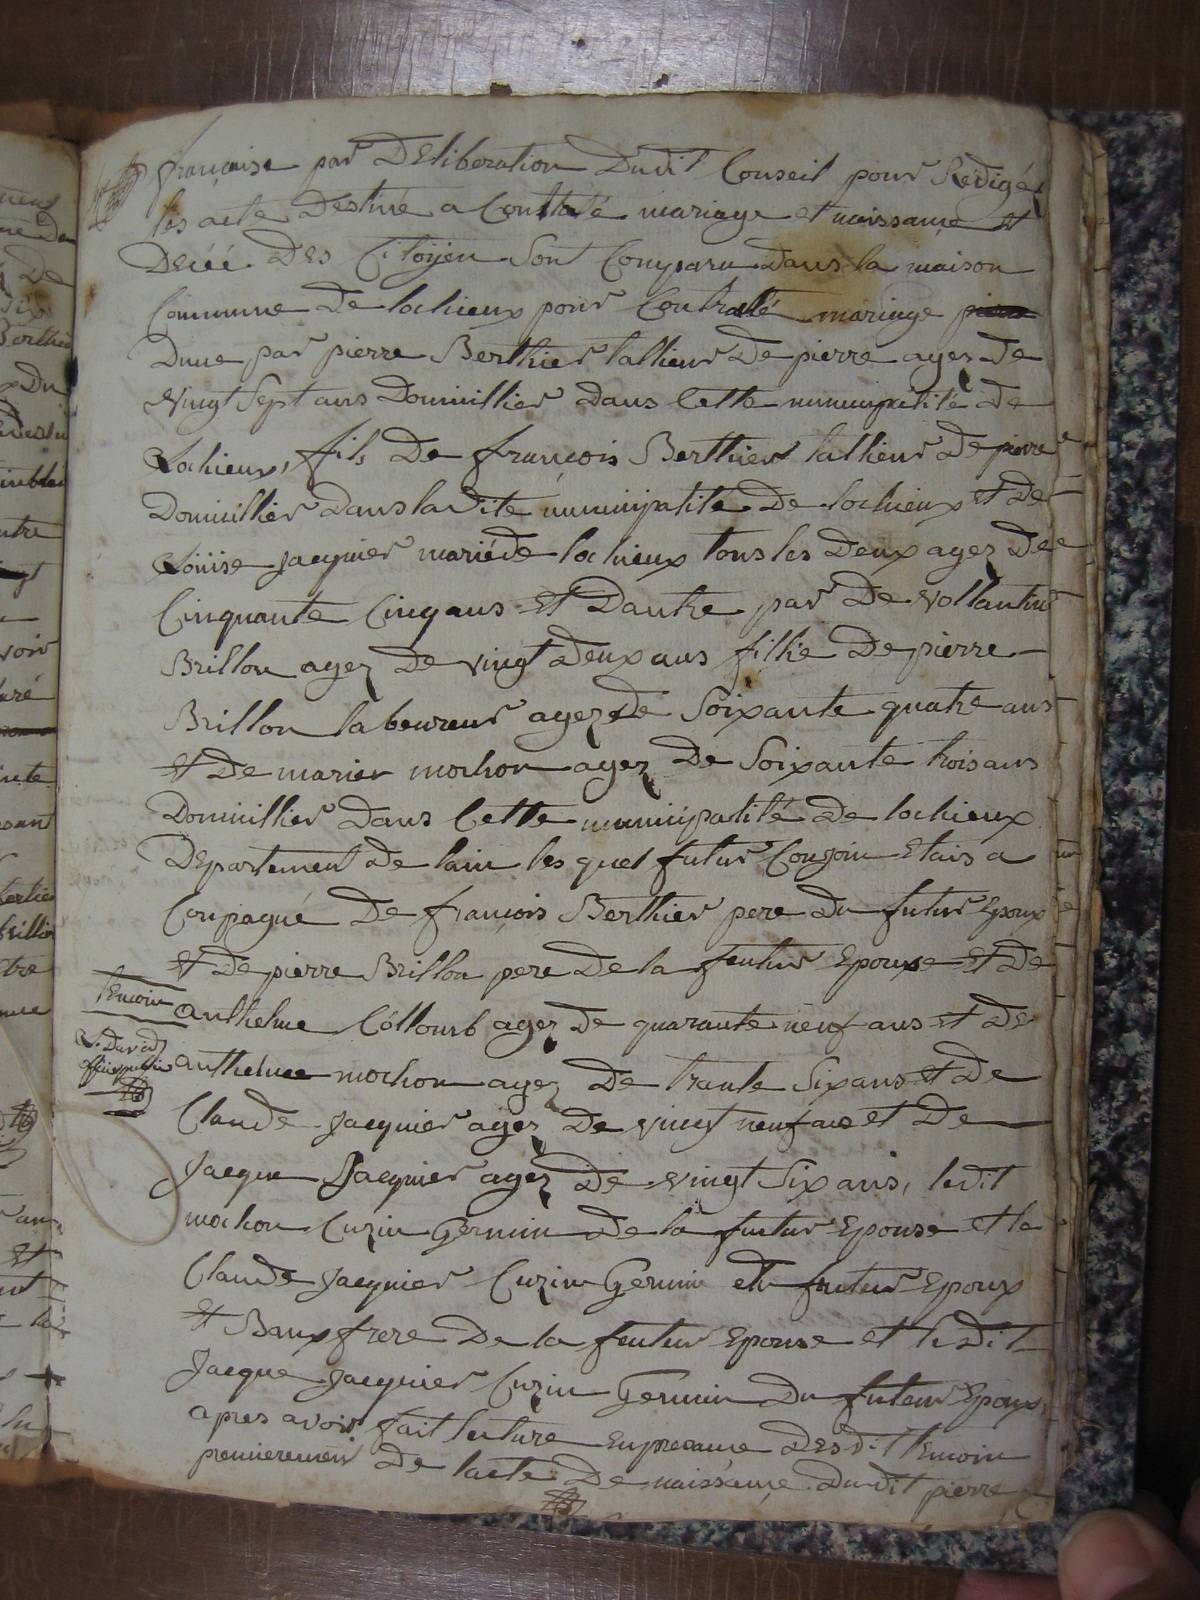 française par DEliberation Dudit Conseil pour Redigé
les acte Destiné a Constaté mariage et naissance et
Décé Des Citoÿen Sont Comparu dans la maison
Commune De lochieux pour Contraté mariage
Dune par pierre Berthier tallieur De pierre agez De
vingt Sept ans Domicillier dans Cette municipalité De
Lochieux, fils De françois Berthier tallieur De pierre
Domicillier Dans la Dite municipalité De lochieux et De
Loüise Jacquier marié de lochieux tous les Deux agez De
Cinquante Cinq ans et Dautre par De vollantine
Brillon agez De vingt Deux ans fillie De pierre
Brillon labeureur agez de Soixante quatre ans
et De marier mochon agez De Soixante trois ans
Domicillier Dans Cette municipalité De lochieux
Departement De lain les quel futur Conjoin Etais a
Compagné De françois Berthier pere Du futur Epoux
et De pierre Brillon pere De la feutur Epouse et De
temoin
anthelme Collomb agez De quarante neuf ans et De
L. David
officie public
anthelme mochon agez De trante Six ans et De
Claude Jacquier agez De vingt neuf ans et De
Jacque Jacquier agez De vingt Six ans, ledit
mochon Cuzin Germin De la futur Epouse et le
Claude Jacquier Cuzin Germin du futeur Epoux
et Baux frere De la feutur Epouse et le Dit
Jacque Jacquier Cuzin Germin Du futeur Epoux,
apres avoir fait lecture en presance Desdit temoin
premierement De lacte De naissance Dudit pierre